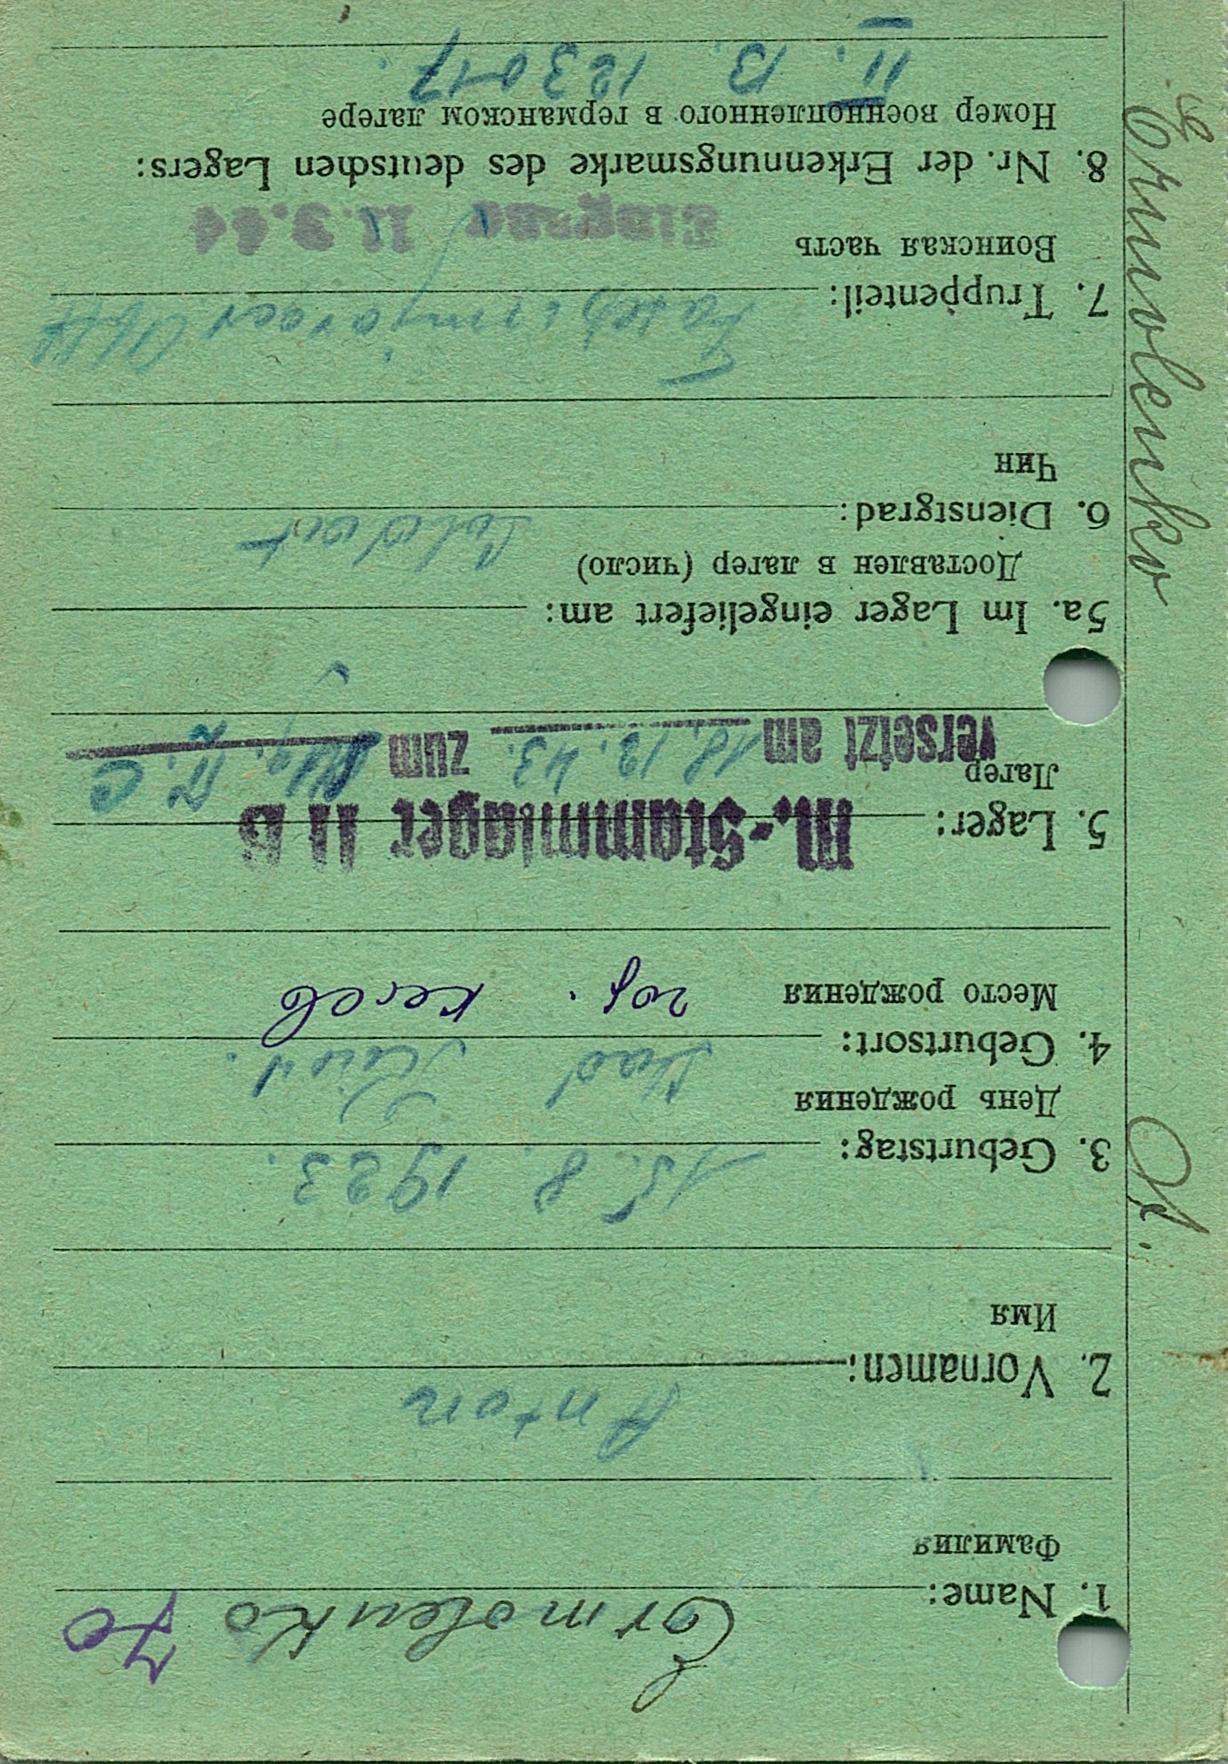 Ermolenko A.
1. Name: Ermolenko
Фамилия
2. Vornamen: Anton
Имя
3. Geburtstag: 15. 8. 1923.
День рождения
4. Geburtsort: Stad Kiew.
Место рождения гор. Киев
5. Lager: M.-Stammlager II B
Лагер versetzt am 18.12.43. zum II C
5a. Im Lager eingeliefert am:
Доставлен в лагер (число)
6. Dienstgrad: Soldat
Чин
7. Truppenteil:
Воинская часть Eingang 11.3.44
8. Nr. der Erkennungsmarke des deutschen Lagers:
Номер военнопленного в германском лагере
II. B. 123017.